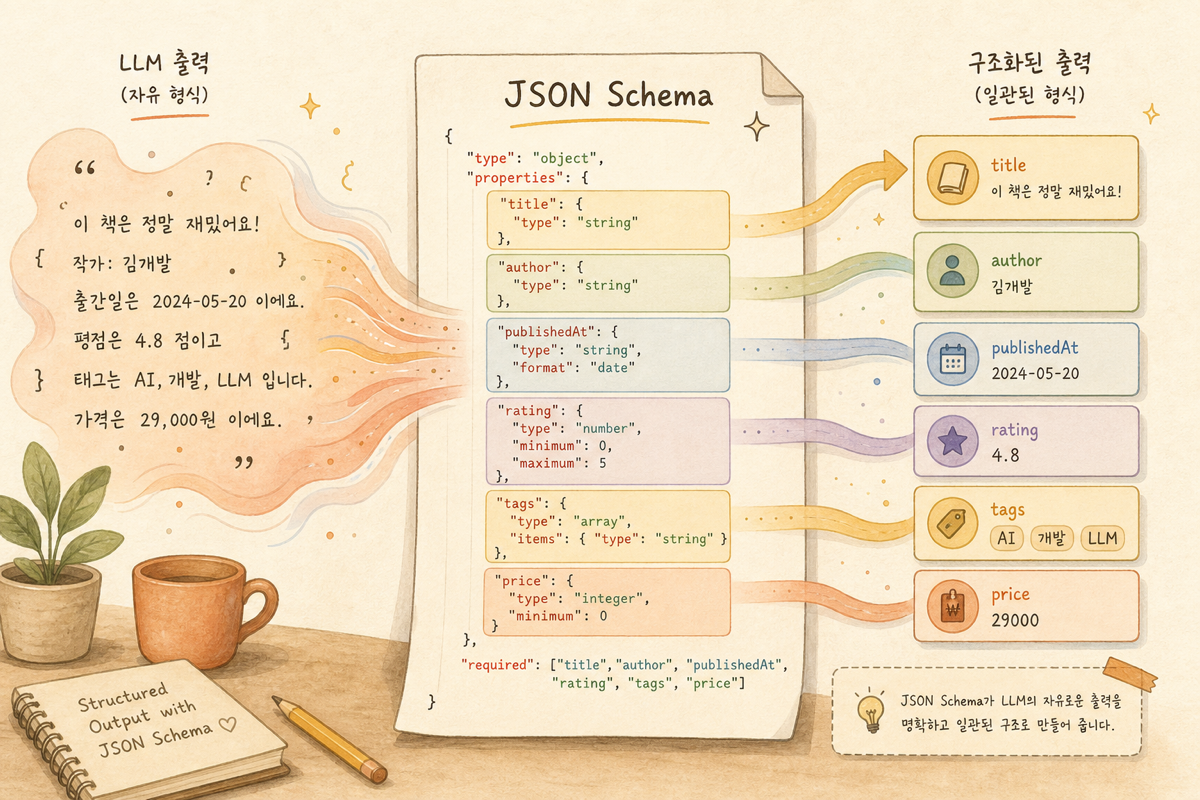 LLM 출력
(자유 형식)
“
? {
이 책은 정말 재밌어요!
{ 작가: 김개발 }
출간일은 2024-05-20 이에요.
평점은 4.8 점이고 {
} 태그는 AI, 개발, LLM 입니다.
가격은 29,000원 이에요. ,
”
Structured
Output with
JSON Schema ♡
JSON Schema
{
"type": "object",
"properties": {
"title": {
"type": "string"
},
"author": {
"type": "string"
},
"publishedAt": {
"type": "string",
"format": "date"
},
"rating": {
"type": "number",
"minimum": 0,
"maximum": 5
},
"tags": {
"type": "array",
"items": { "type": "string" }
},
"price": {
"type": "integer",
"minimum": 0
}
},
"required": ["title","author", "publishedAt",
"rating", "tags", "price"]
}
구조화된 출력
(일관된 형식)
title
이 책은 정말 재밌어요!
author
김개발
publishedAt
2024-05-20
rating
4.8
tags
AI 개발 LLM
price
₩
29000
JSON Schema가 LLM의 자유로운 출력을
명확하고 일관된 구조로 만들어 줍니다.